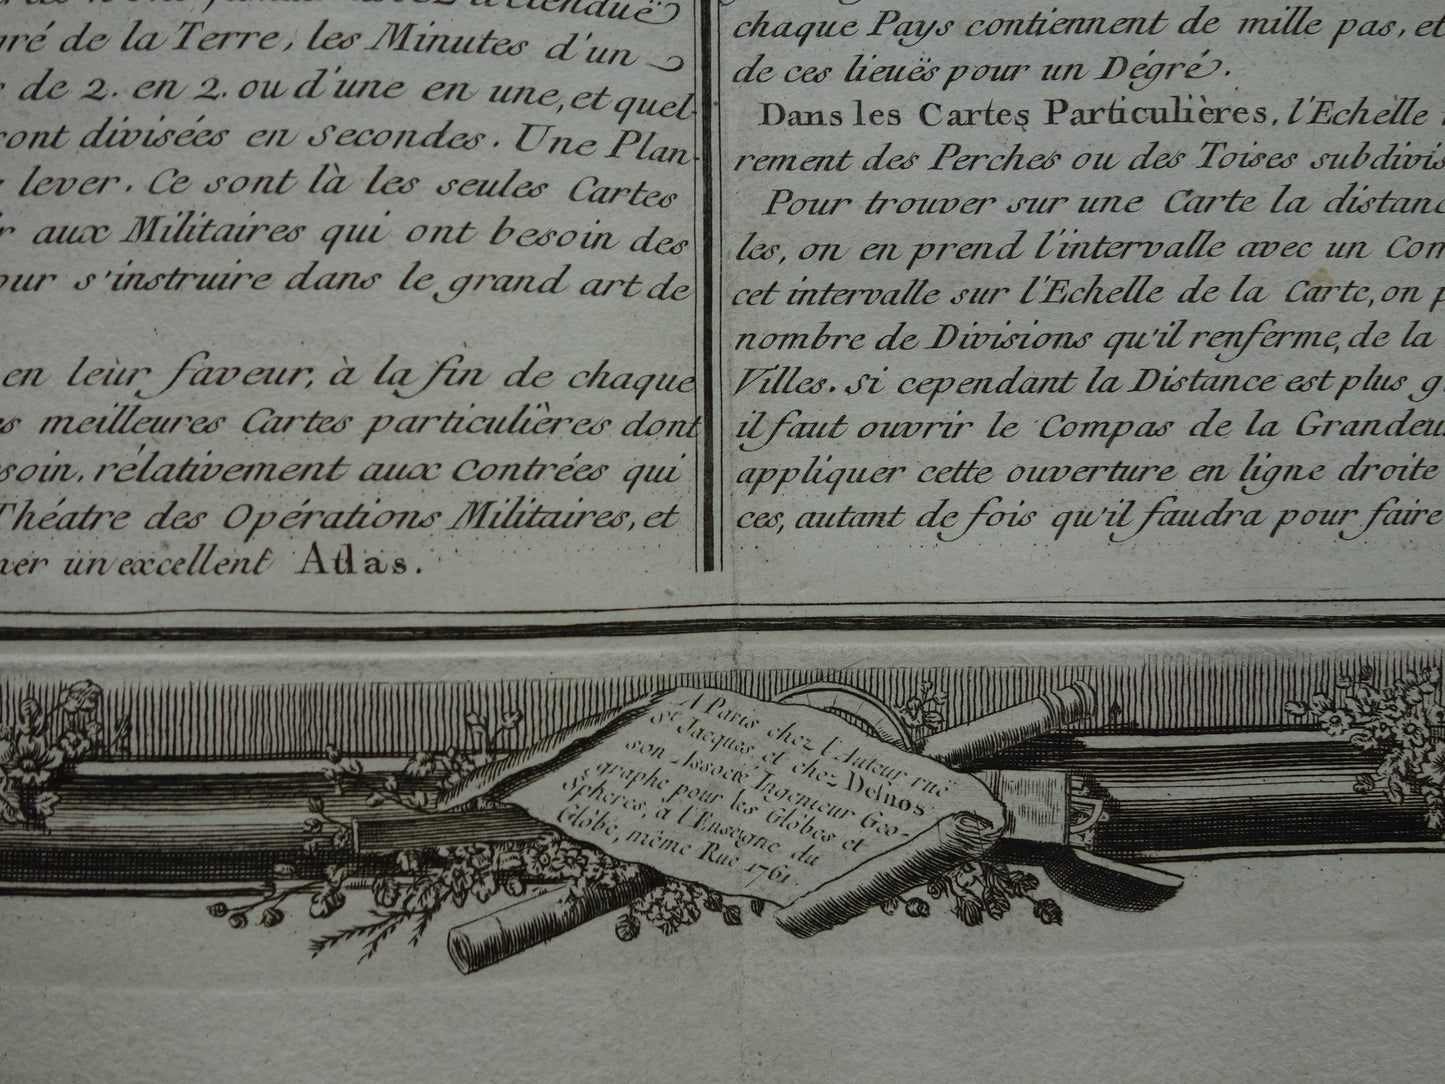 gré de la Terre, les Minutes d'un
de 2. en 2. ou d'une en une, et quel
ront divisées en Secondes. Une Plan-
lever. Ce sont là les seules Cartes
aux Militaires qui ont besoin des
our s'instruire dans le grand art de
en leur faveur, à la fin de chaque
es meilleures Cartes particulières dont
soin, rélativement aux Contrées qui
Théatre des Opérations Militaires, et
ner un excellent Atlas.
chaque Pays contiennent de mille pas, et
de ces lieuës pour un Dégré.
Dans les Cartes Particulières, l'Echelle
rement des Perches ou des Toises subdivis
Pour trouver sur une Carte la distanc
les, on en prend l'intervalle avec un Com
cet intervalle sur l'Echelle de la Carte, on p
nombre de Divisions qu'il renferme, de la
Villes. Si cependant la Distance est plus g
il faut ouvrir le Compas de la Grandeu
appliquer cette ouverture en ligne droite
ces, autant de fois qu'il faudra pour faire
A Paris chez l'Auteur ruë
St. Jacques, et chez Delnos
son Associé Ingenieur Geo-
graphe pour les Glôbes et
Spheres, à l'Enseigne du
Glôbe, même Rue 1761.